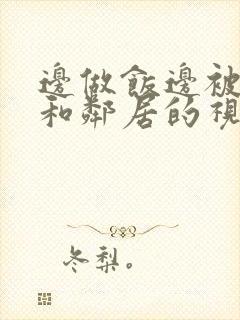 邊做飯邊被
和鄰居的視
冬梨。